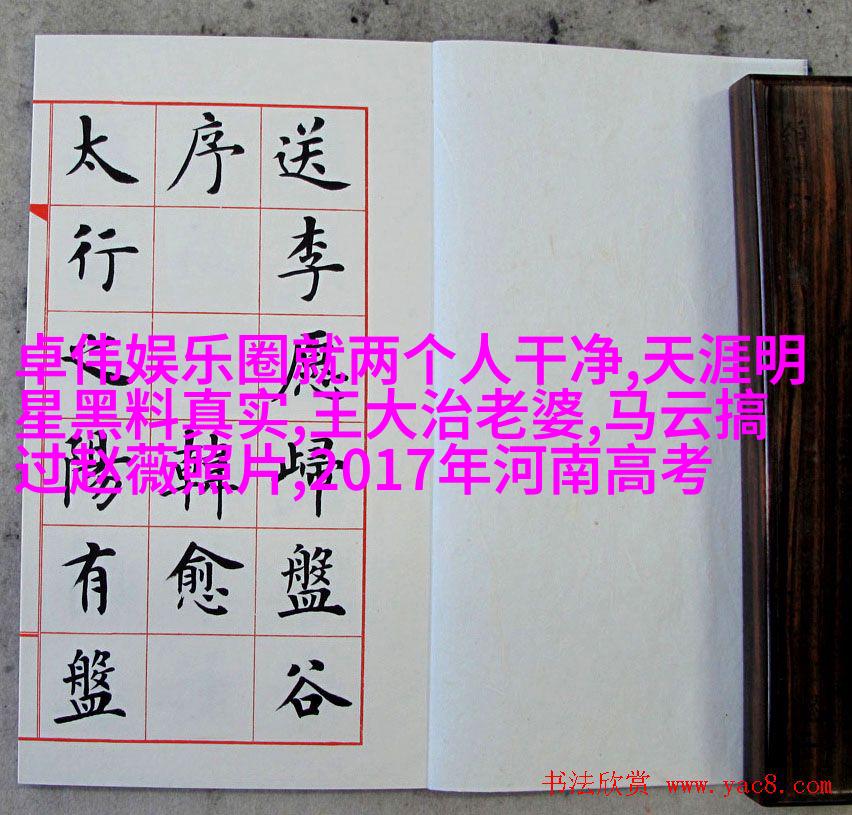 送李愿歸盤谷
序 韓愈
太行之陽有盤
卓伟娱乐圈就两个人干净,天涯明
星黑料真实,王大治老婆,马云搞
过赵薇照片,2017年河南高考
书法欣赏 www.yac8.com